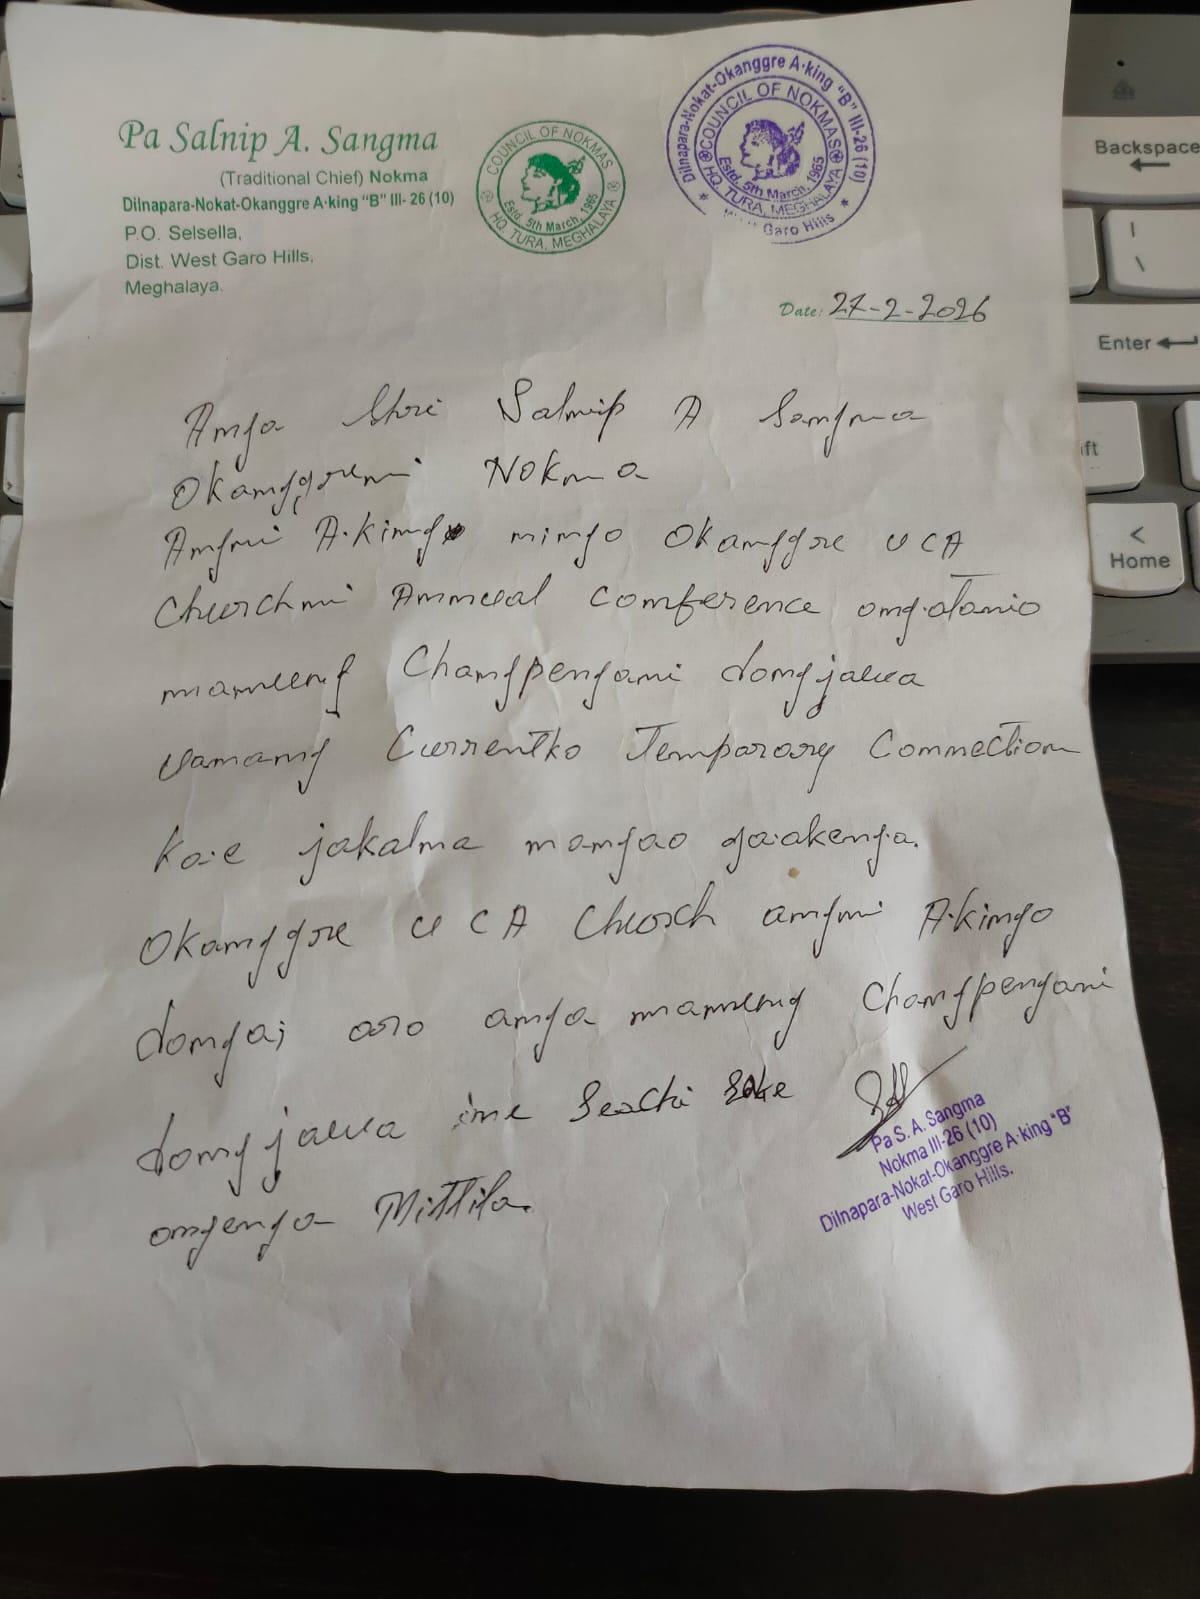 Pa Salnip A. Sangma
(Traditional Chief) Nokma
Dilnapara-Nokat-Okanggre A·king "B" III- 26 (10)
P.O. Selsella,
Dist. West Garo Hills,
Meghalaya.
COUNCIL OF NOKMAS
Estd. 5th March, 1965
HQ. TURA, MEGHALAYA
Dilnapara-Nokat-Okanggre A·king "B" III-26 (10)
COUNCIL OF NOKMAS
Estd. 5th March, 1965
HQ. TURA, MEGHALAYA
Garo Hills
Date: 27-2-2026
Anga Shri Salnip A Sangma
Okanggreni Nokma
Angni A·king mingo Okanggre UCA
Churchni Annual Conference ong·atanio
mamung Champengani dongjawa
uanang Currentko Temporory Connection
ka·e jakalna mangao ga·akenga.
Okanggre UCA Church angni A·kingo
donga; aro anga mamung Champengani
dongjawa ine Seachi
ongenga
Pa S. A. Sangma
Nokma III-26 (10)
Dilnapara-Nokat-Okanggre A·king "B"
West Garo Hills.